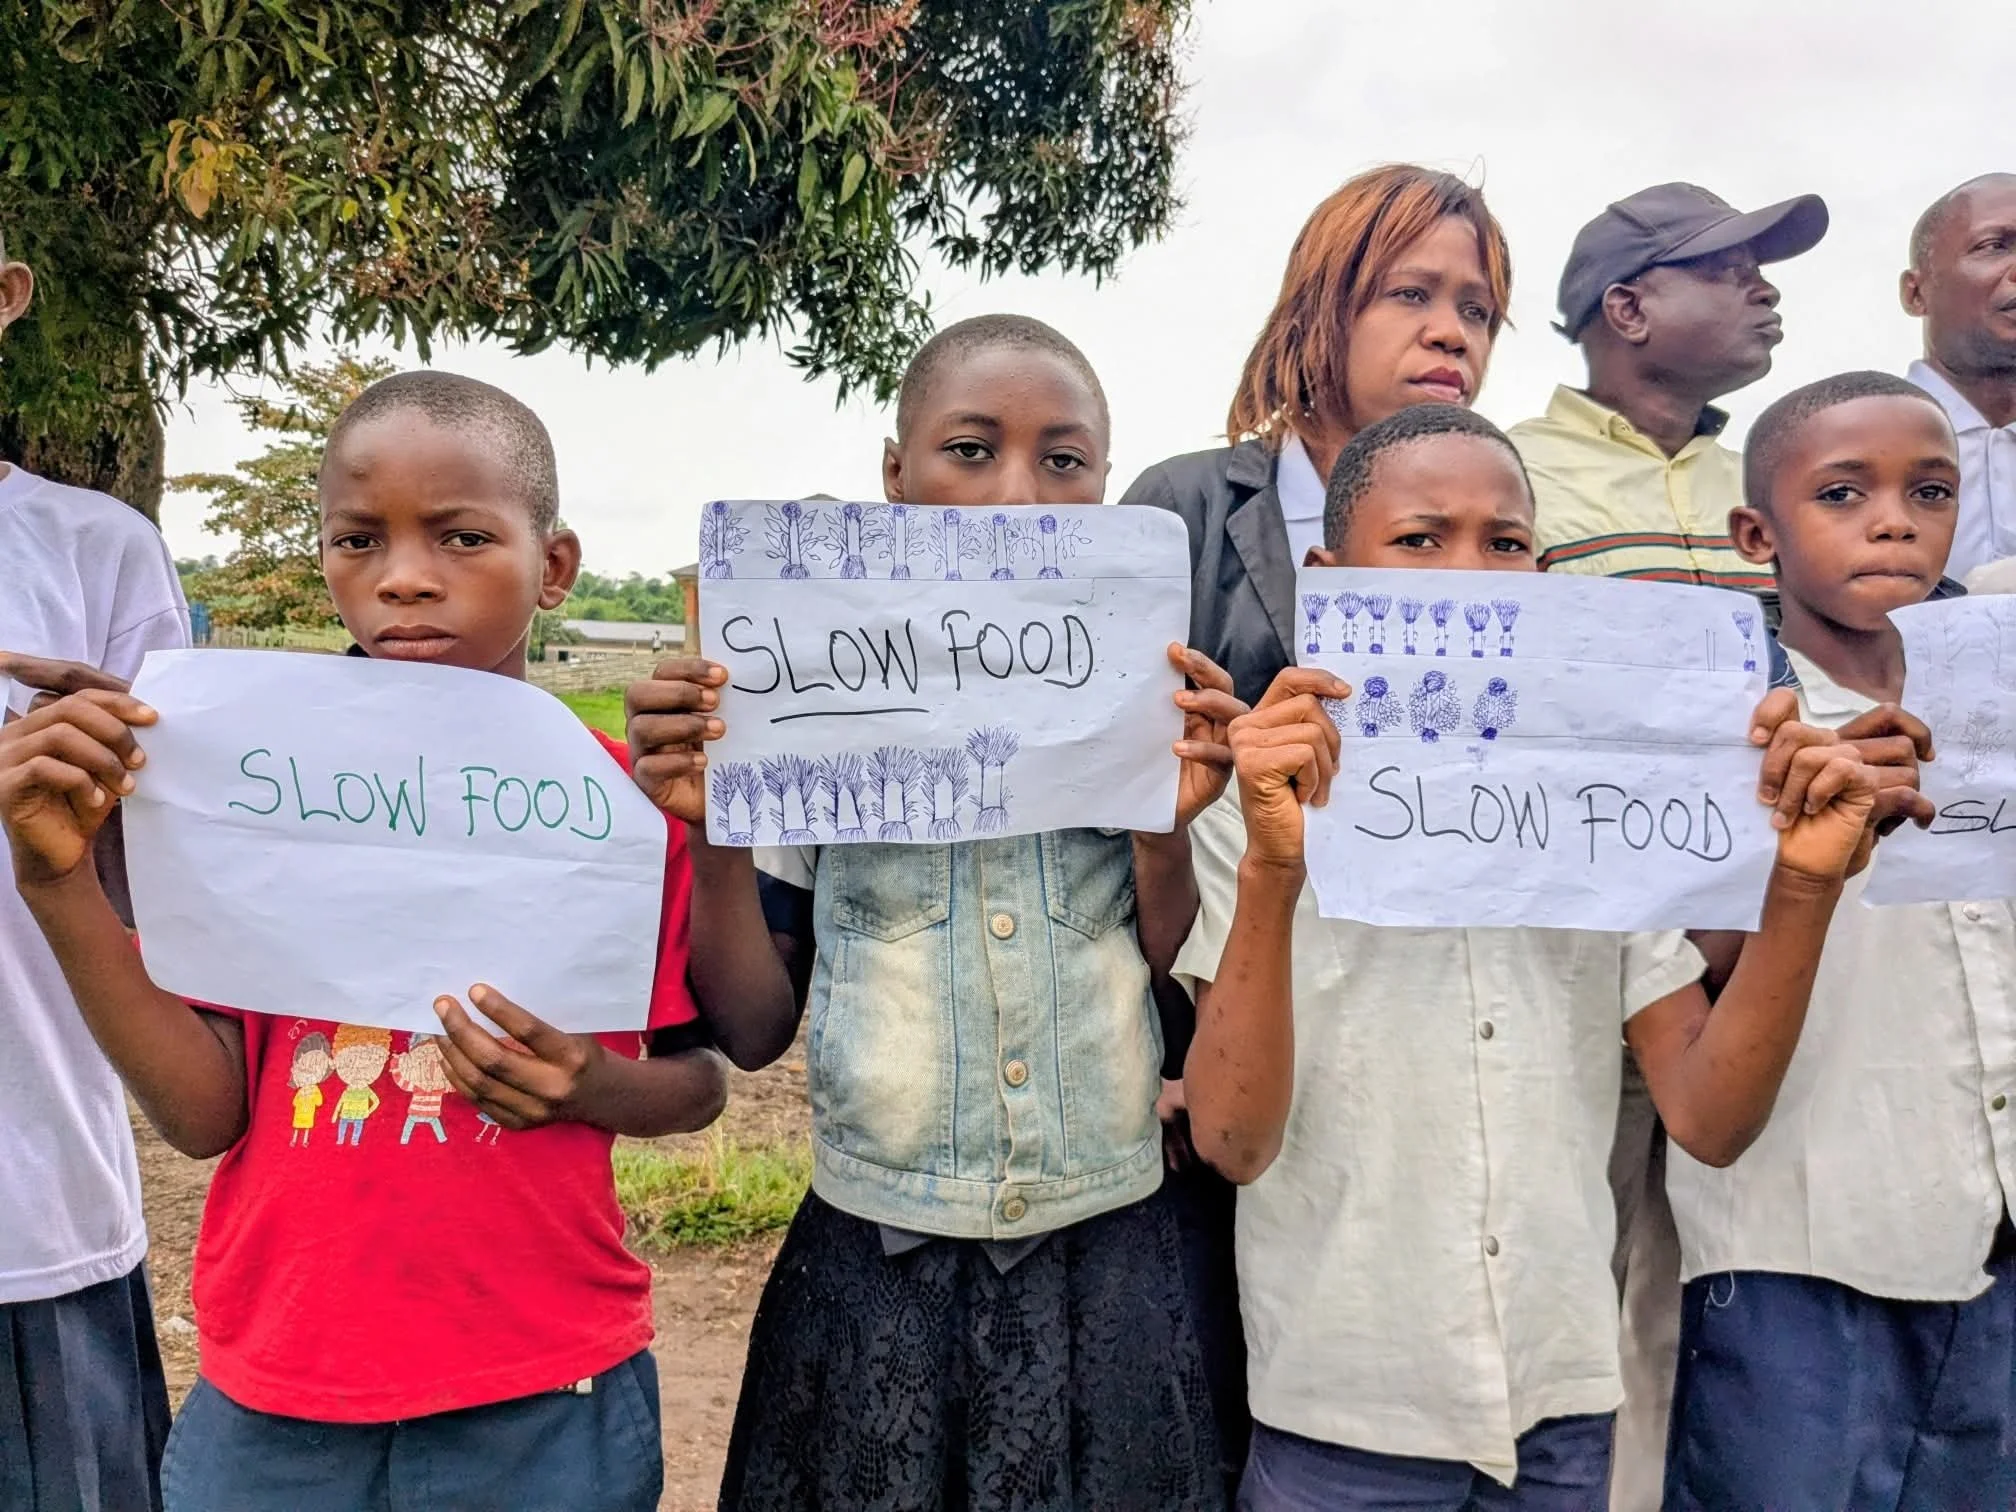 SLOW FOOD
SLOW FOOD
SLOW FOOD
SL